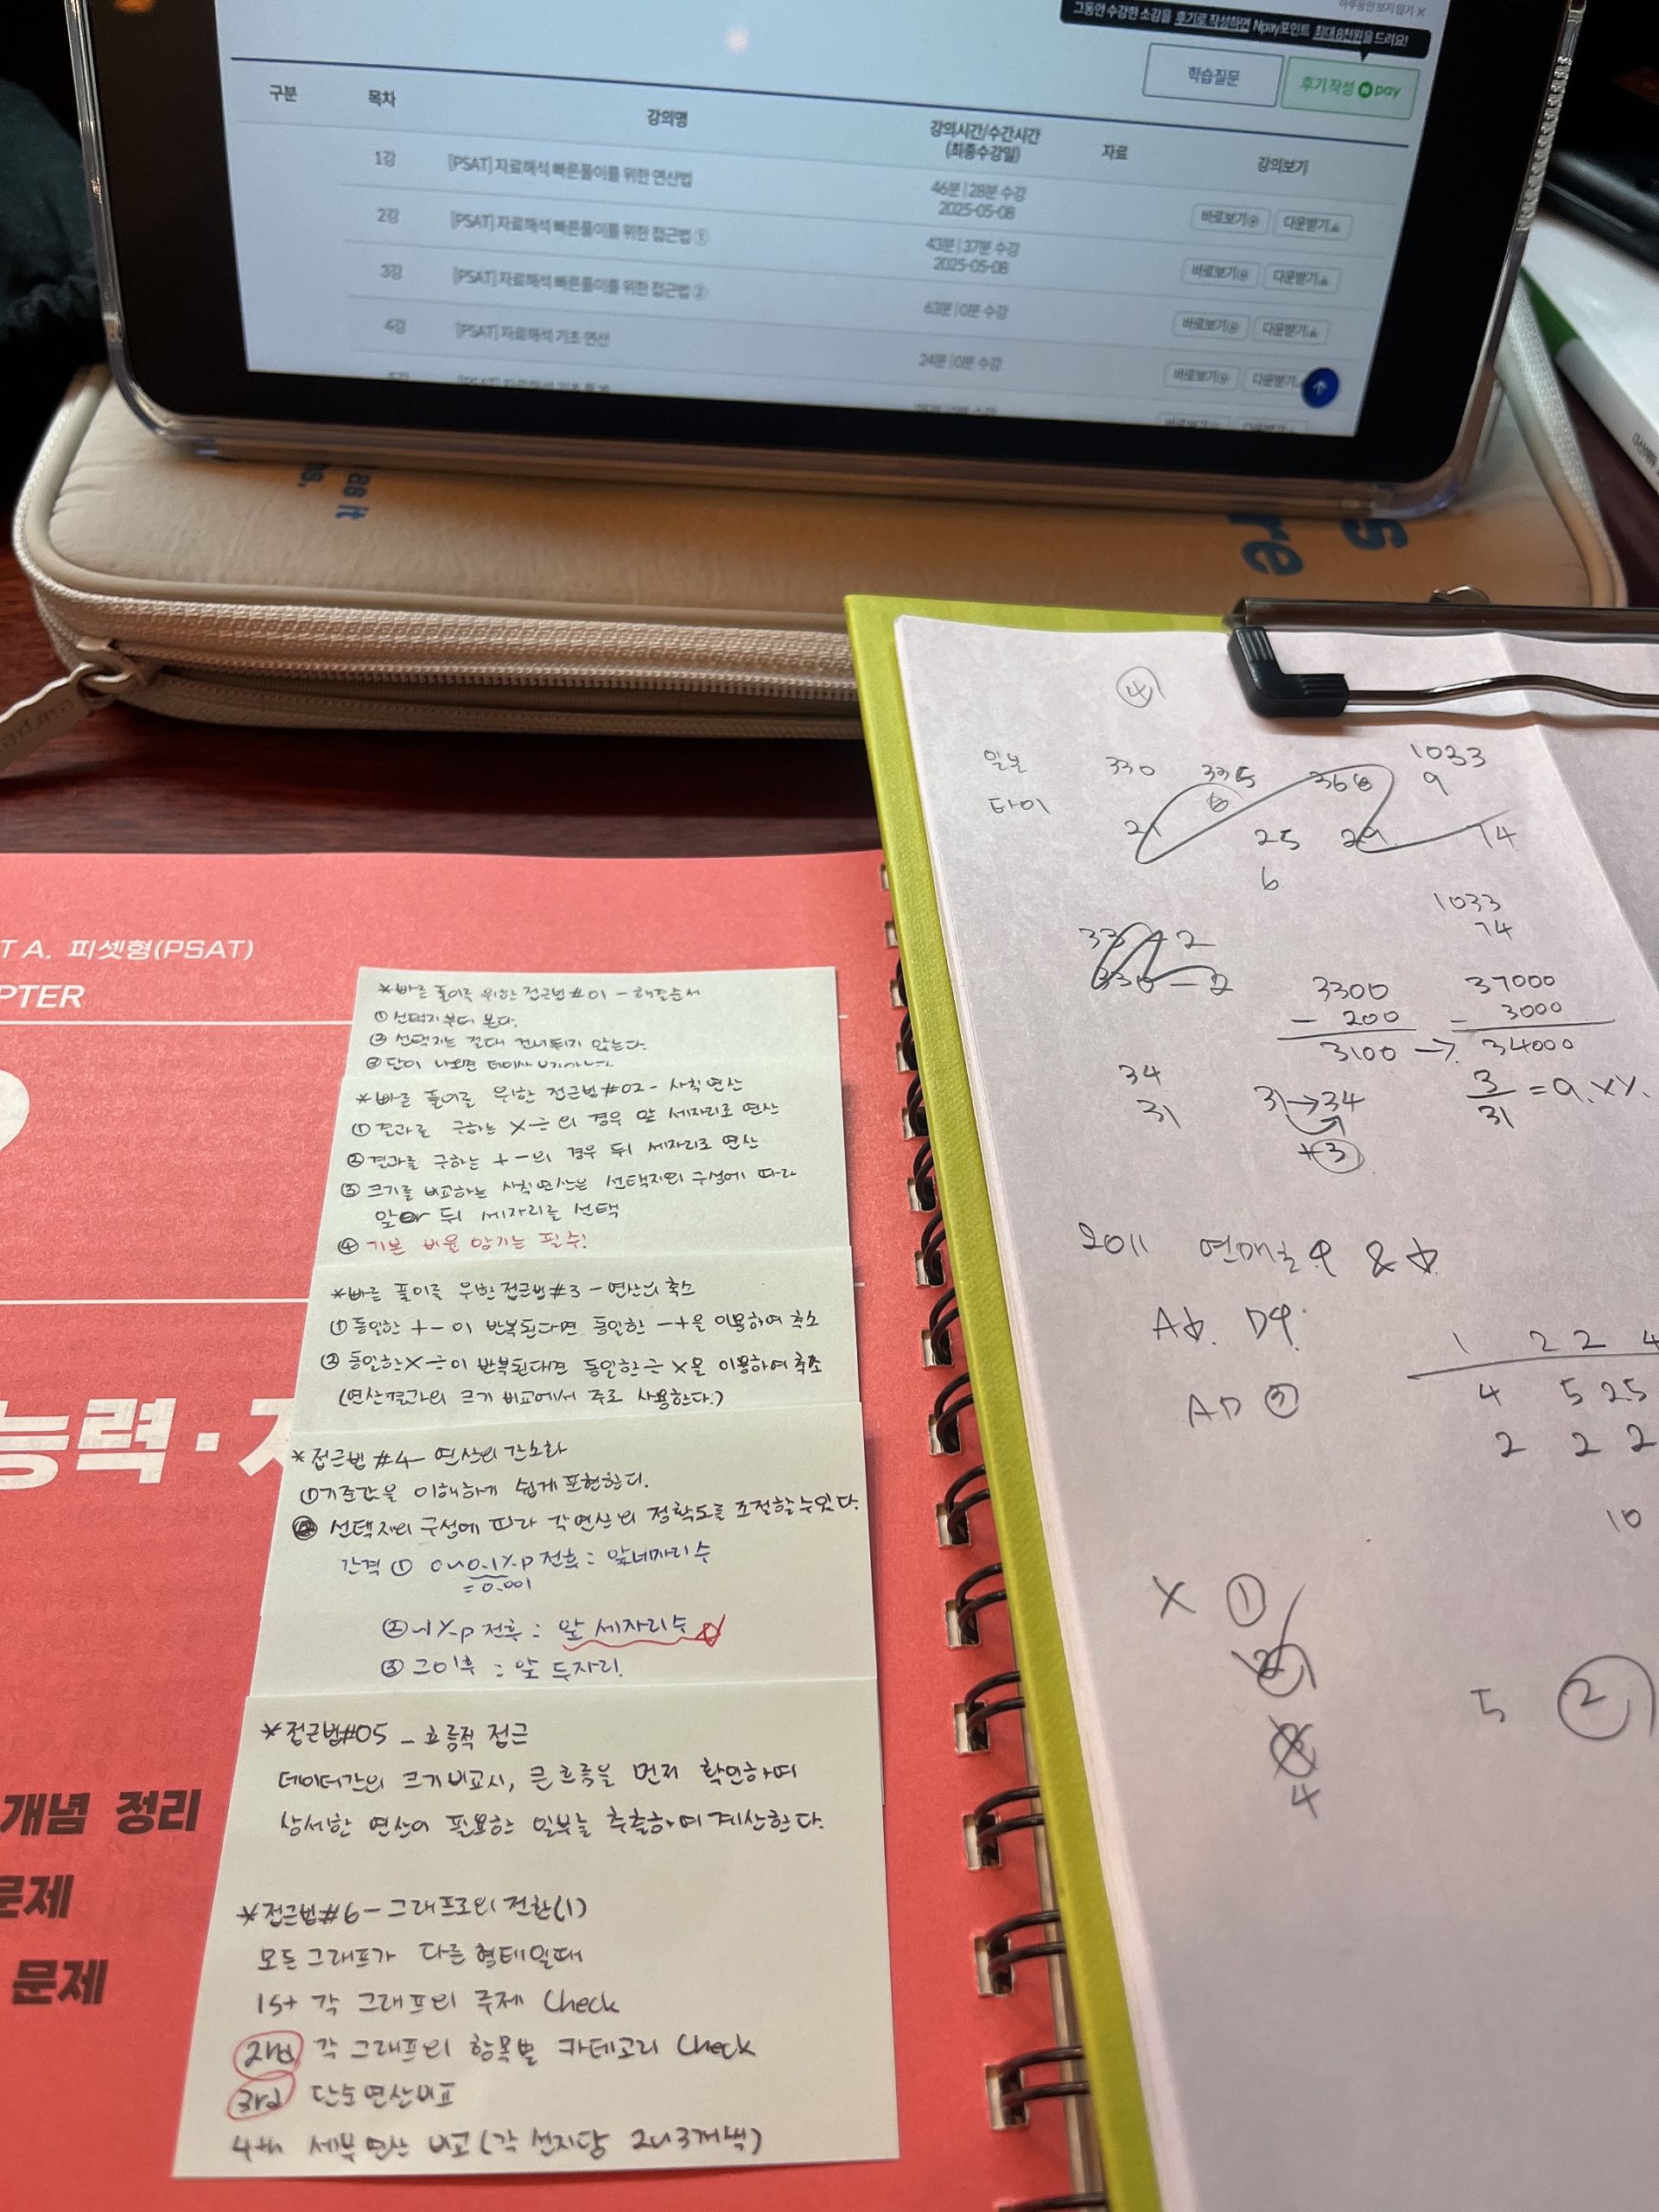 하루동안 보지 않기 X
그동안 수강한 소감을 후기로 작성하면 Npay포인트 최대 8천원을 드려요!
학습질문
후기 작성 N pay
구분 목차 강의명 강의시간/수강시간 자료 강의보기
(최종수강일)
1강 [PSAT] 자료해석 빠른풀이를 위한 연산법 46분 | 28분 수강 바로보기 다운받기
2025-05-08
2강 [PSAT] 자료해석 빠른풀이를 위한 접근법 ① 43분 | 37분 수강 바로보기 다운받기
2025-05-08
3강 [PSAT] 자료해석 빠른풀이를 위한 접근법 ② 63분 | 0분 수강 바로보기 다운받기
4강 [PSAT] 자료해석 기초 연산 24분 | 0분 수강 바로보기 다운받기
es It
re
T A. 피셋형(PSAT)
PTER
능력·
개념 정리
문제
문제
*빠른 풀이를 위한 접근법 #01 - 해결순서
① 선택지부터 본다.
② 선택지는 절대 건너뛰지 않는다.
*빠른 풀이를 위한 접근법 #02 - 사칙연산
① 결과를 구하는 ×÷의 경우 앞 세자리로 연산
② 결과를 구하는 +-의 경우 뒤 세자리로 연산
③ 크기를 비교하는 사칙연산은 선택지의 구성에 따라
앞 or 뒤 세자리를 선택
④ 기본 비율 암기는 필수!
*빠른 풀이를 위한 접근법 #3 - 연산의 축소
① 동일한 +-이 반복된다면 동일한 -+을 이용하여 축소
② 동일한 ×÷이 반복된다면 동일한 ÷×을 이용하여 축소
(연산결과의 크기 비교에서 주로 사용한다.)
*접근법 #4- 연산의 간소화
① 기준값을 이해하기 쉽게 표현한다.
② 선택지의 구성에 따라 각 연산의 정확도를 조절할 수 있다.
간격 ① 0~0.1%p 전후 : 앞 네자리 수
=0.001
② ~1%p 전후 : 앞 세자리 수
③ 그 이후 : 앞 두자리!
*접근법 #05 - 흐름적 접근
데이터간의 크기 비교시, 큰 흐름을 먼저 확인하며
상세한 연산이 필요한 일부를 추출하여 계산한다.
*접근법 #6 - 그래프로의 전환(1)
모든 그래프가 다른 형태일때
1st 각 그래프의 주제 check
2nd 각 그래프의 항목별 카테고리 check
3rd 단순연산비교
4th 세부연산 비교 (각 선지당 2~3개씩)
④
일본 330 335 368 1033
6 9
타이 21 25 29 14
6
1033
74
3300 37000
- 200 - 3000
3100 → 34000
34
31 31→34 3/31 = 9.XX%
+③
2011 연매출
1 2 2 4
4 5 2.5
AD ②
2 2 2
10
X ①
②
③
4
5 ②